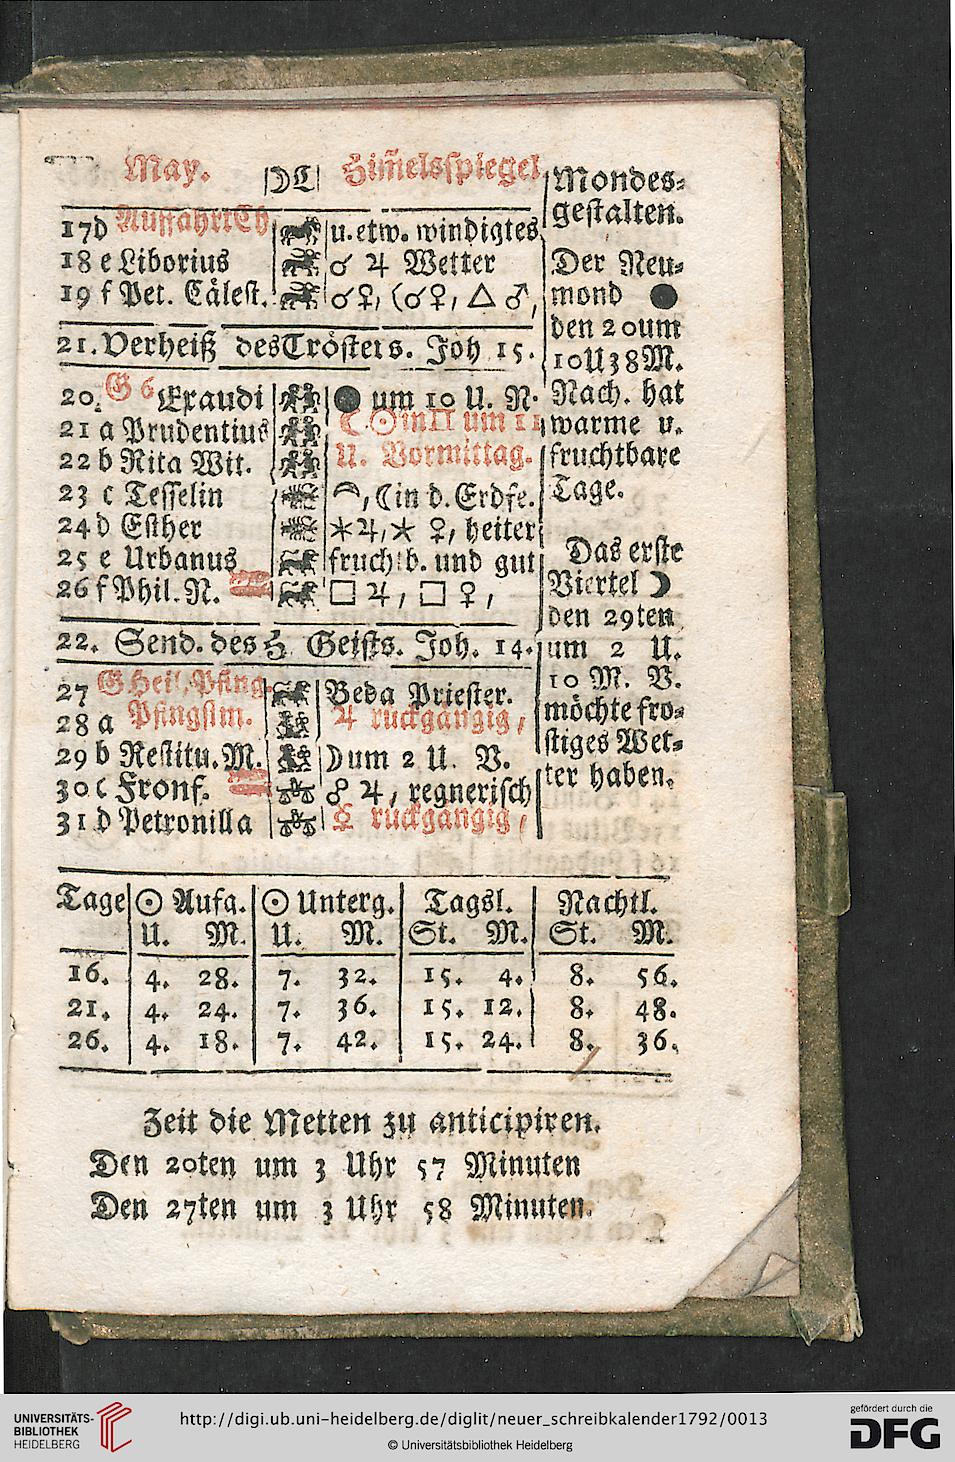 May. ☽C Him̃elsspiegel.
17 d Auffahrt Ch u. etw. windigtes
18 e Liborius ☌ ♃ Wetter
19 f Pet. Cälest. ☌♀, (☌♀, △ ♂,
21. Verheiß des Trösters. Joh 15.
20. G 6 Exaudi ● um 10 U. N.
21 a Prudentius ☾. ☉ in ♊ um 11
22 b Rita Wit. U. Vormittag.
23 c Tesselin , ☾ in d. Erdfe.
24 d Esther ✶♃, ✶ ♀, heiter
25 e Urbanus fruchtb. und gut
26 f Phil. N. □ ♃, □ ♀,
22. Send. des H Geists. Joh. 14.
27 G Heil. Pfing. Beda Priester.
28 a Pfingstm. ♃ ruckgängig,
29 b Restitu. M. ☽ um 2 U. V.
30 c Fronf. ☍ ♃, regnerisch
31 d Petronilla ☿ ruckgängig,
Mondes-
gestalten.
Der Neu-
mond ●
den 20 um
10 U 38 M.
Nach. hat
warme u.
fruchtbare
Tage.
Das erste
Viertel ☽
den 29ten
um 2 U.
10 M. V.
möchte fro-
stiges Wet-
ter haben.
Tage ☉ Aufg. ☉ Unterg. Tagsl. Nachtl.
U. M. U. M. St. M. St. M.
16. 4. 28. 7. 32. 15. 4. 8. 56.
21. 4. 24. 7. 36. 15. 12. 8. 48.
26. 4. 18. 7. 42. 15. 24. 8. 36.
Zeit die Metten zu anticipiren.
Den 20ten um 3 Uhr 57 Minuten
Den 27ten um 3 Uhr 58 Minuten.
UNIVERSITÄTS-
BIBLIOTHEK
HEIDELBERG
http://digi.ub.uni-heidelberg.de/diglit/neuer_schreibkalender1792/0013
© Universitätsbibliothek Heidelberg
gefördert durch die
DFG